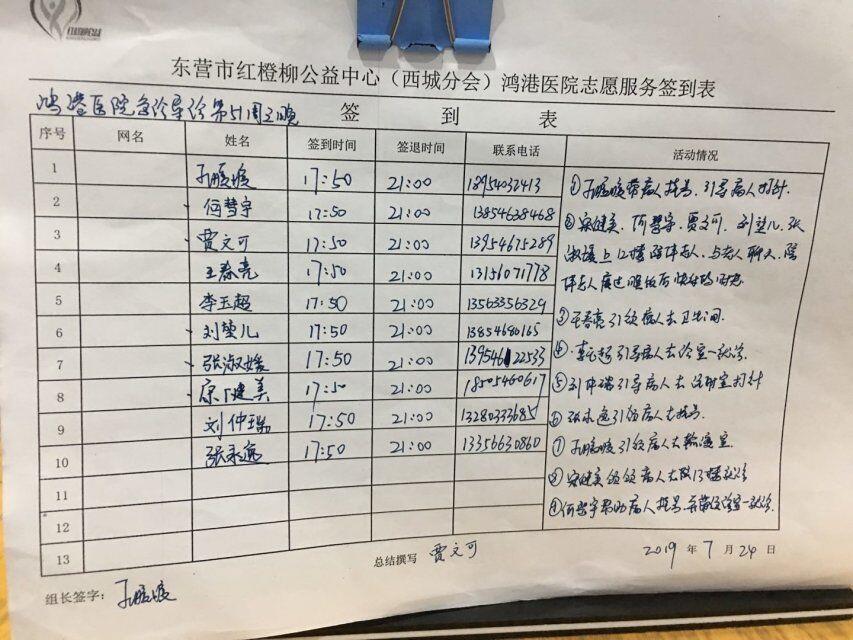 东营市红橙柳公益中心（西城分会）鸿港医院志愿服务签到表
鸿港医院急诊导诊第51周三晚 签 到 表
序号 网名 姓名 签到时间 签退时间 联系电话 活动情况
1 17:50 21:00 18954032413
2 何慧宇 17:50 21:00 13854638468
3 贾文可 17:50 21:00 13954675289
4 王春亮 17:50 21:00 13156071778
5 李玉超 17:50 21:00 13563356329
6 刘堃儿 17:50 21:00 13854680165
7 张淑媛 17:50 21:00 13954622533
8 健美 17:50 21:00 18505460617
9 刘仲瑞 17:50 21:00 13280333685
10 张永逸 17:50 21:00 13356630860
11
12
13
①带病人挂号、引导病人打针.
②健美、何慧宇、贾文可、刘堃儿、张
淑媛上12楼陪伴老人、与老人聊天、陪
伴老人度过晚饭后快乐的时光
③王春亮引领病人去卫生间.
④李玉超引导病人去诊室一就诊.
⑤刘仲瑞引导病人去注射室打针
⑥张永逸引领病人去挂号.
⑦引领病人去输液室.
⑧健美病人去就诊
⑨何慧宇帮助病人挂号、并带领诊室一就诊.
总结撰写 贾文可
2019 年 7 月 24 日
组长签字：